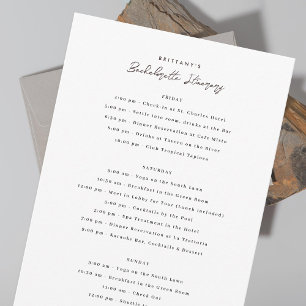 BRITTANY'S
Bachelorette Itinerary
FRIDAY
3:00 pm - Check-in at St. Charles Hotel
5:00 pm - Settle into room, drinks at the Bar
6:00 pm - Dinner Reservation at Cafe Misto
8:00 pm - Drinks at Tavern on the River
11:00 pm - Club Tropical Explore
SATURDAY
9:00 am - Yoga on the South Lawn
10:30 am - Breakfast in the Green Room
12:00 pm - Meet in Lobby for Tour (lunch included)
3:00 pm - Cocktails by the Pool
5:00 pm - Spa Treatment in the Hotel
7:00 pm - Dinner Reservation at La Trattoria
9:00 pm - Karaoke Bar, Cocktails & Dessert
SUNDAY
9:00 am - Yoga on the South Lawn
10:30 am - Breakfast in the Green Room
12:00 pm - Check Out